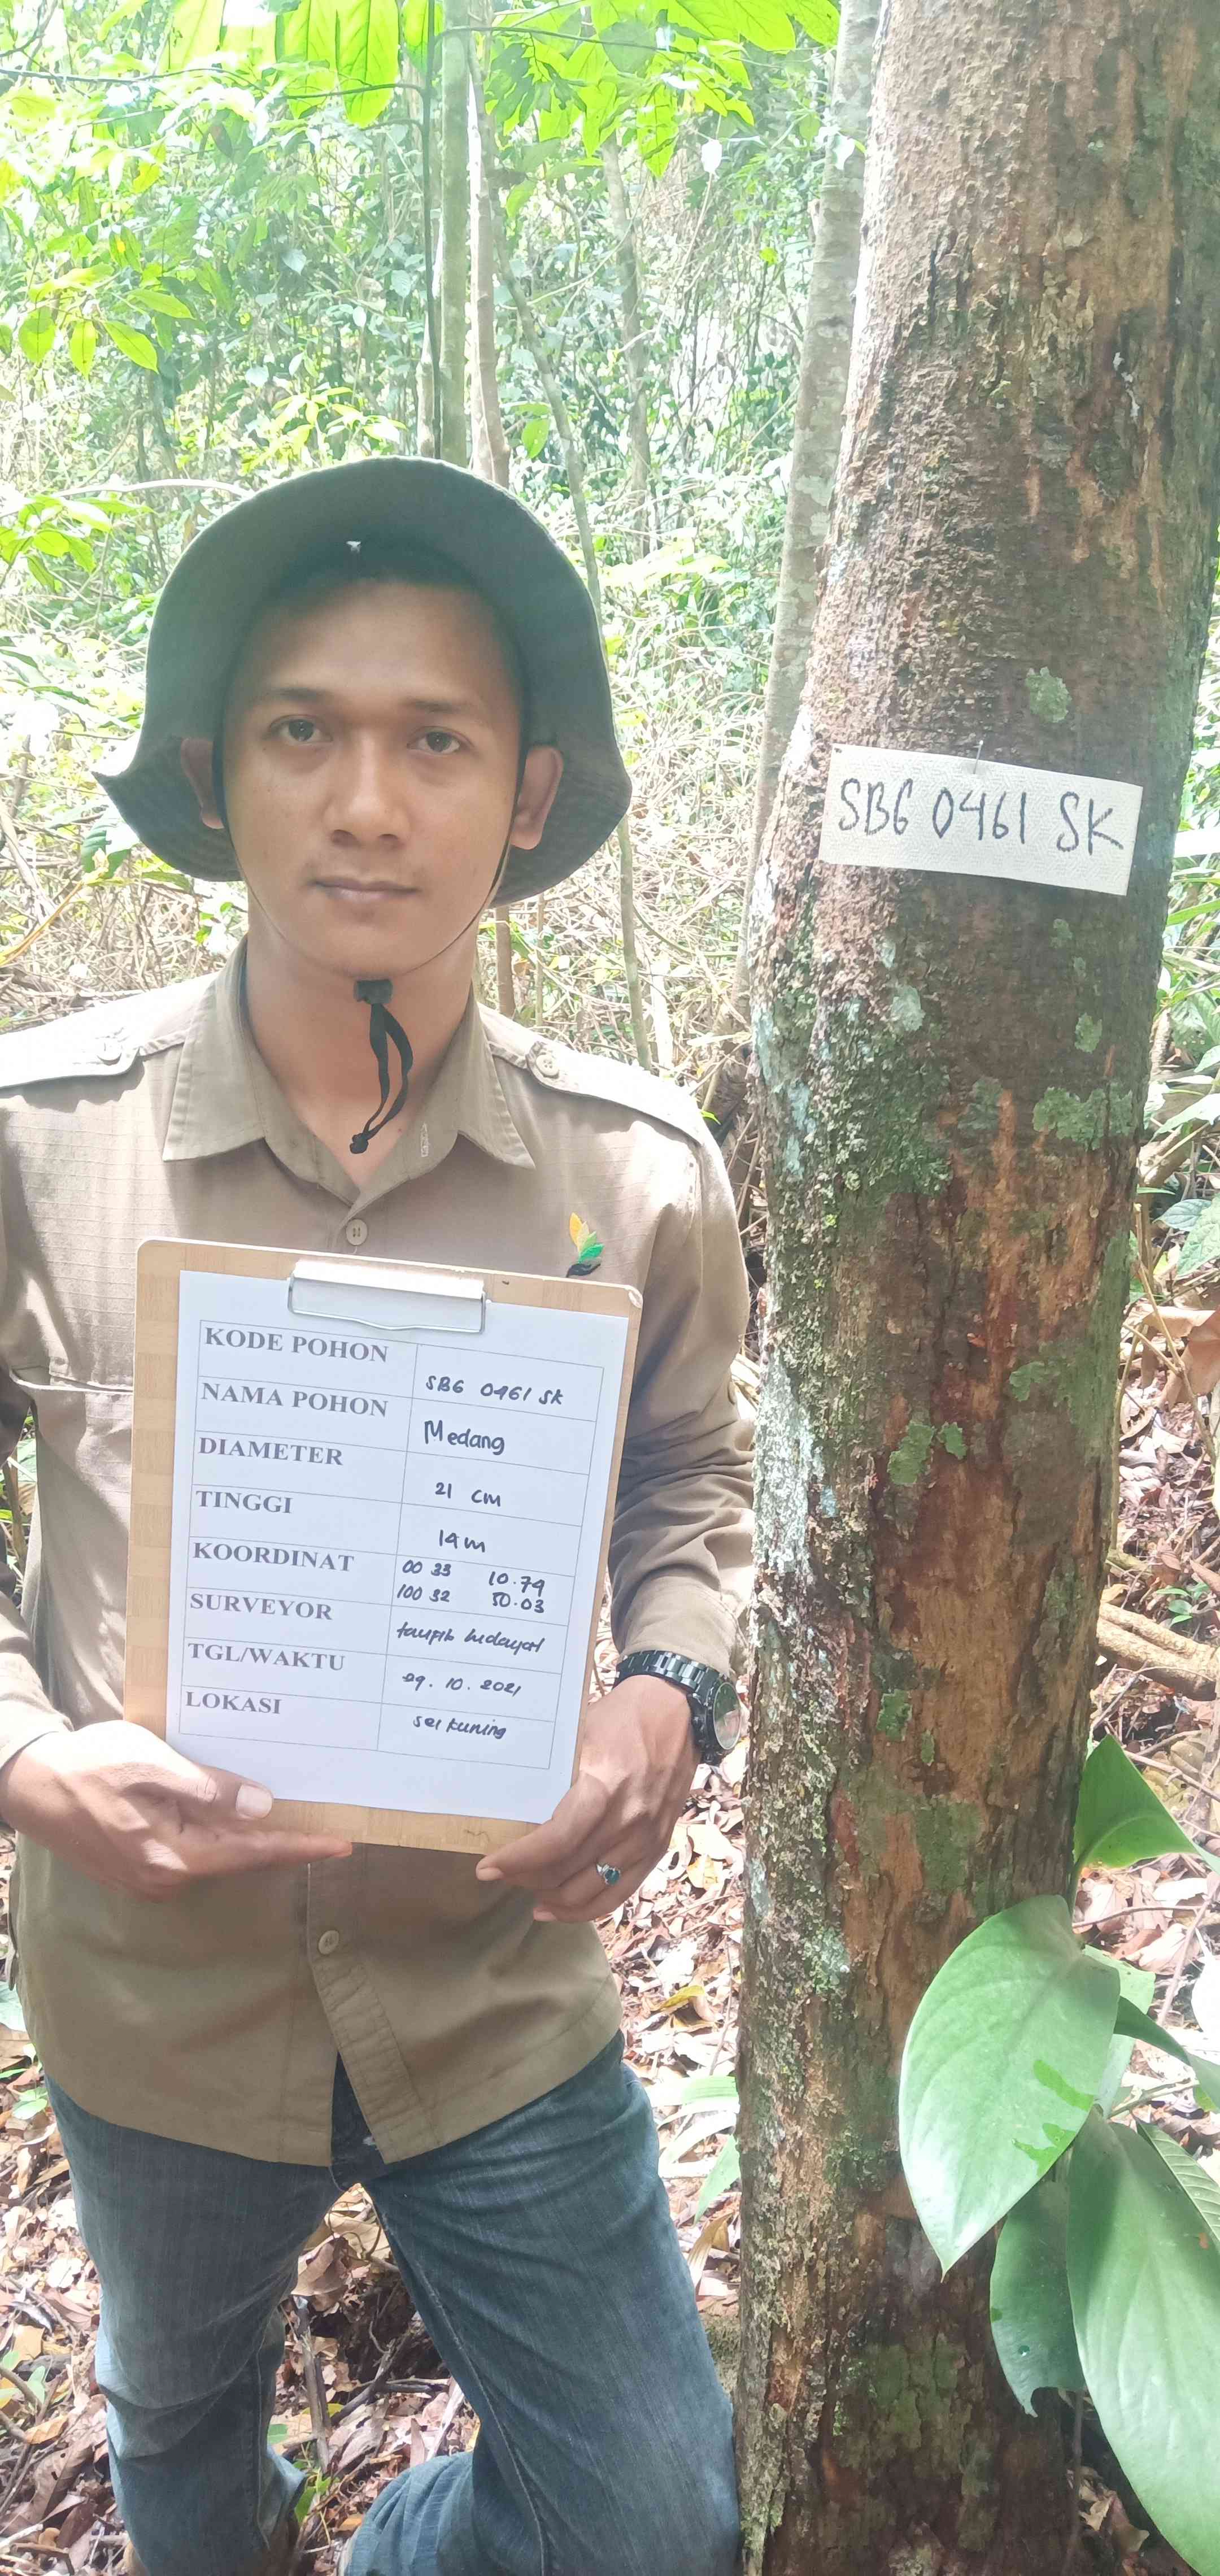 SBG 0461 SK
KODE POHON SBG 0461 SK
NAMA POHON Medang
DIAMETER 21 cm
TINGGI 14 m
KOORDINAT 00 33 10.79
100 32 50.03
SURVEYOR taufik hidayat
TGL/WAKTU 29.10.2021
LOKASI sei kuning